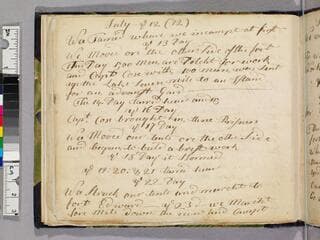 July ye 12 (12)
We Tarried where we incampt at first
ye 13 Day
We Moved on the other Side of the fort
this Day 1500 men are Detcht for work
and Capt Cox with 200 men was Sent
up the Lake seven mile to an Island
for an advanst Gard
the 14 Day tarrid hear and 15
ye 16 Day
Capt Con brought in three Prisners
ye 17 Day
We Moved our tents on the other Side
and begun to bild a brest work
ye 18 Day it stormed
ye 19 20 & 21 tarid hear
ye 22 Day
We Struck our tents and marcht to
fort Edward ye 23 we Marcht
five Mils down the river and Campt